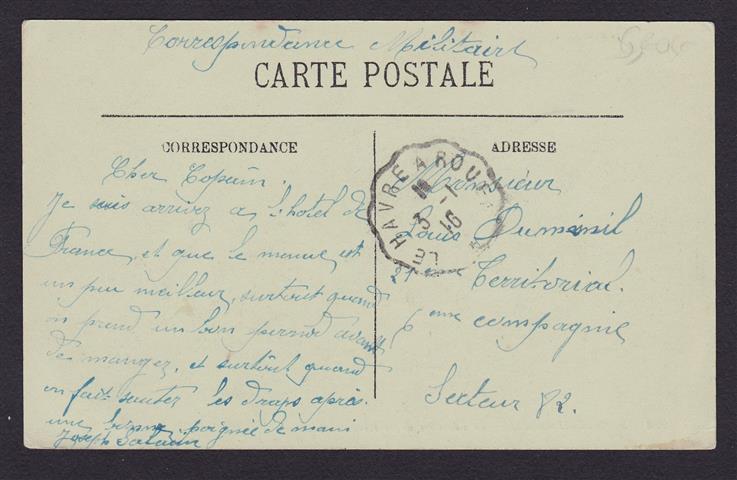 Correspondance Militaire
CARTE POSTALE
CORRESPONDANCE
Cher Copain.
Je suis arrivez a l'hotel de
France, et que le menue est
un peu meilleur, surtout quand
on prend un bon pernod avant
de mangez, et surtout quand
on fait sautez les draps après.
une bonne poignée de main
Joseph
ADRESSE
LE HAVRE A ROUEN
3 - 1
16
Monsieur
Louis Duménil
21 Territorial.
6eme compagnie
Secteur 82.